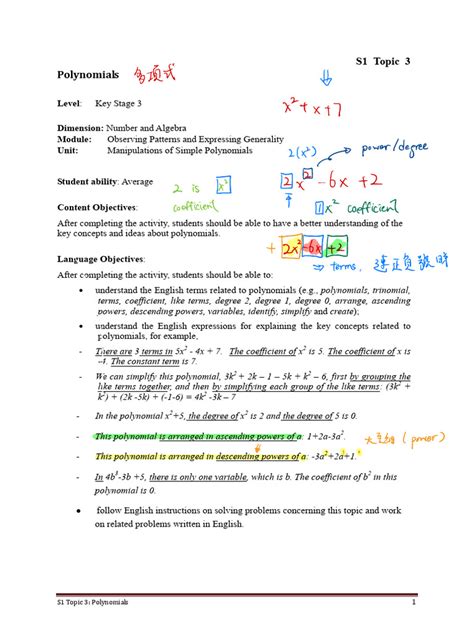 S1 Topic 3
Polynomials 多項式
Level: Key Stage 3
x² + x + 7
Dimension: Number and Algebra
Module: Observing Patterns and Expressing Generality
Unit: Manipulations of Simple Polynomials
2(x²)
power/degree
Student ability: Average
2 is x²
2x² - 6x + 2
Content Objectives:
coefficient
1x² coefficient
After completing the activity, students should be able to have a better understanding of the
key concepts and ideas about polynomials.
+2x²-6x+2
Language Objectives:
⇒ terms, 連正負號
After completing the activity, students should be able to:
• understand the English terms related to polynomials (e.g., polynomials, trinomial,
terms, coefficient, like terms, degree 2, degree 1, degree 0, arrange, ascending
powers, descending powers, variables, identify, simplify and create);
• understand the English expressions for explaining the key concepts related to
polynomials, for example,
- There are 3 terms in 5x² - 4x + 7. The coefficient of x² is 5. The coefficient of x is
-4. The constant term is 7.
- We can simplify this polynomial, 3k² + 2k – 1 – 5k + k² – 6, first by grouping the
like terms together, and then by simplifying each group of the like terms: (3k² +
k²) + (2k -5k) + (-1-6) = 4k² -3k – 7
- In the polynomial x²+5, the degree of x² is 2 and the degree of 5 is 0.
- This polynomial is arranged in ascending powers of a: 1+2a-3a².
(power)
- This polynomial is arranged in descending powers of a: -3a²+2a+1.
- In 4b³-3b +5, there is only one variable, which is b. The coefficient of b² in this
polynomial is 0.
• follow English instructions on solving problems concerning this topic and work
on related problems written in English.
S1 Topic 3: Polynomials 1